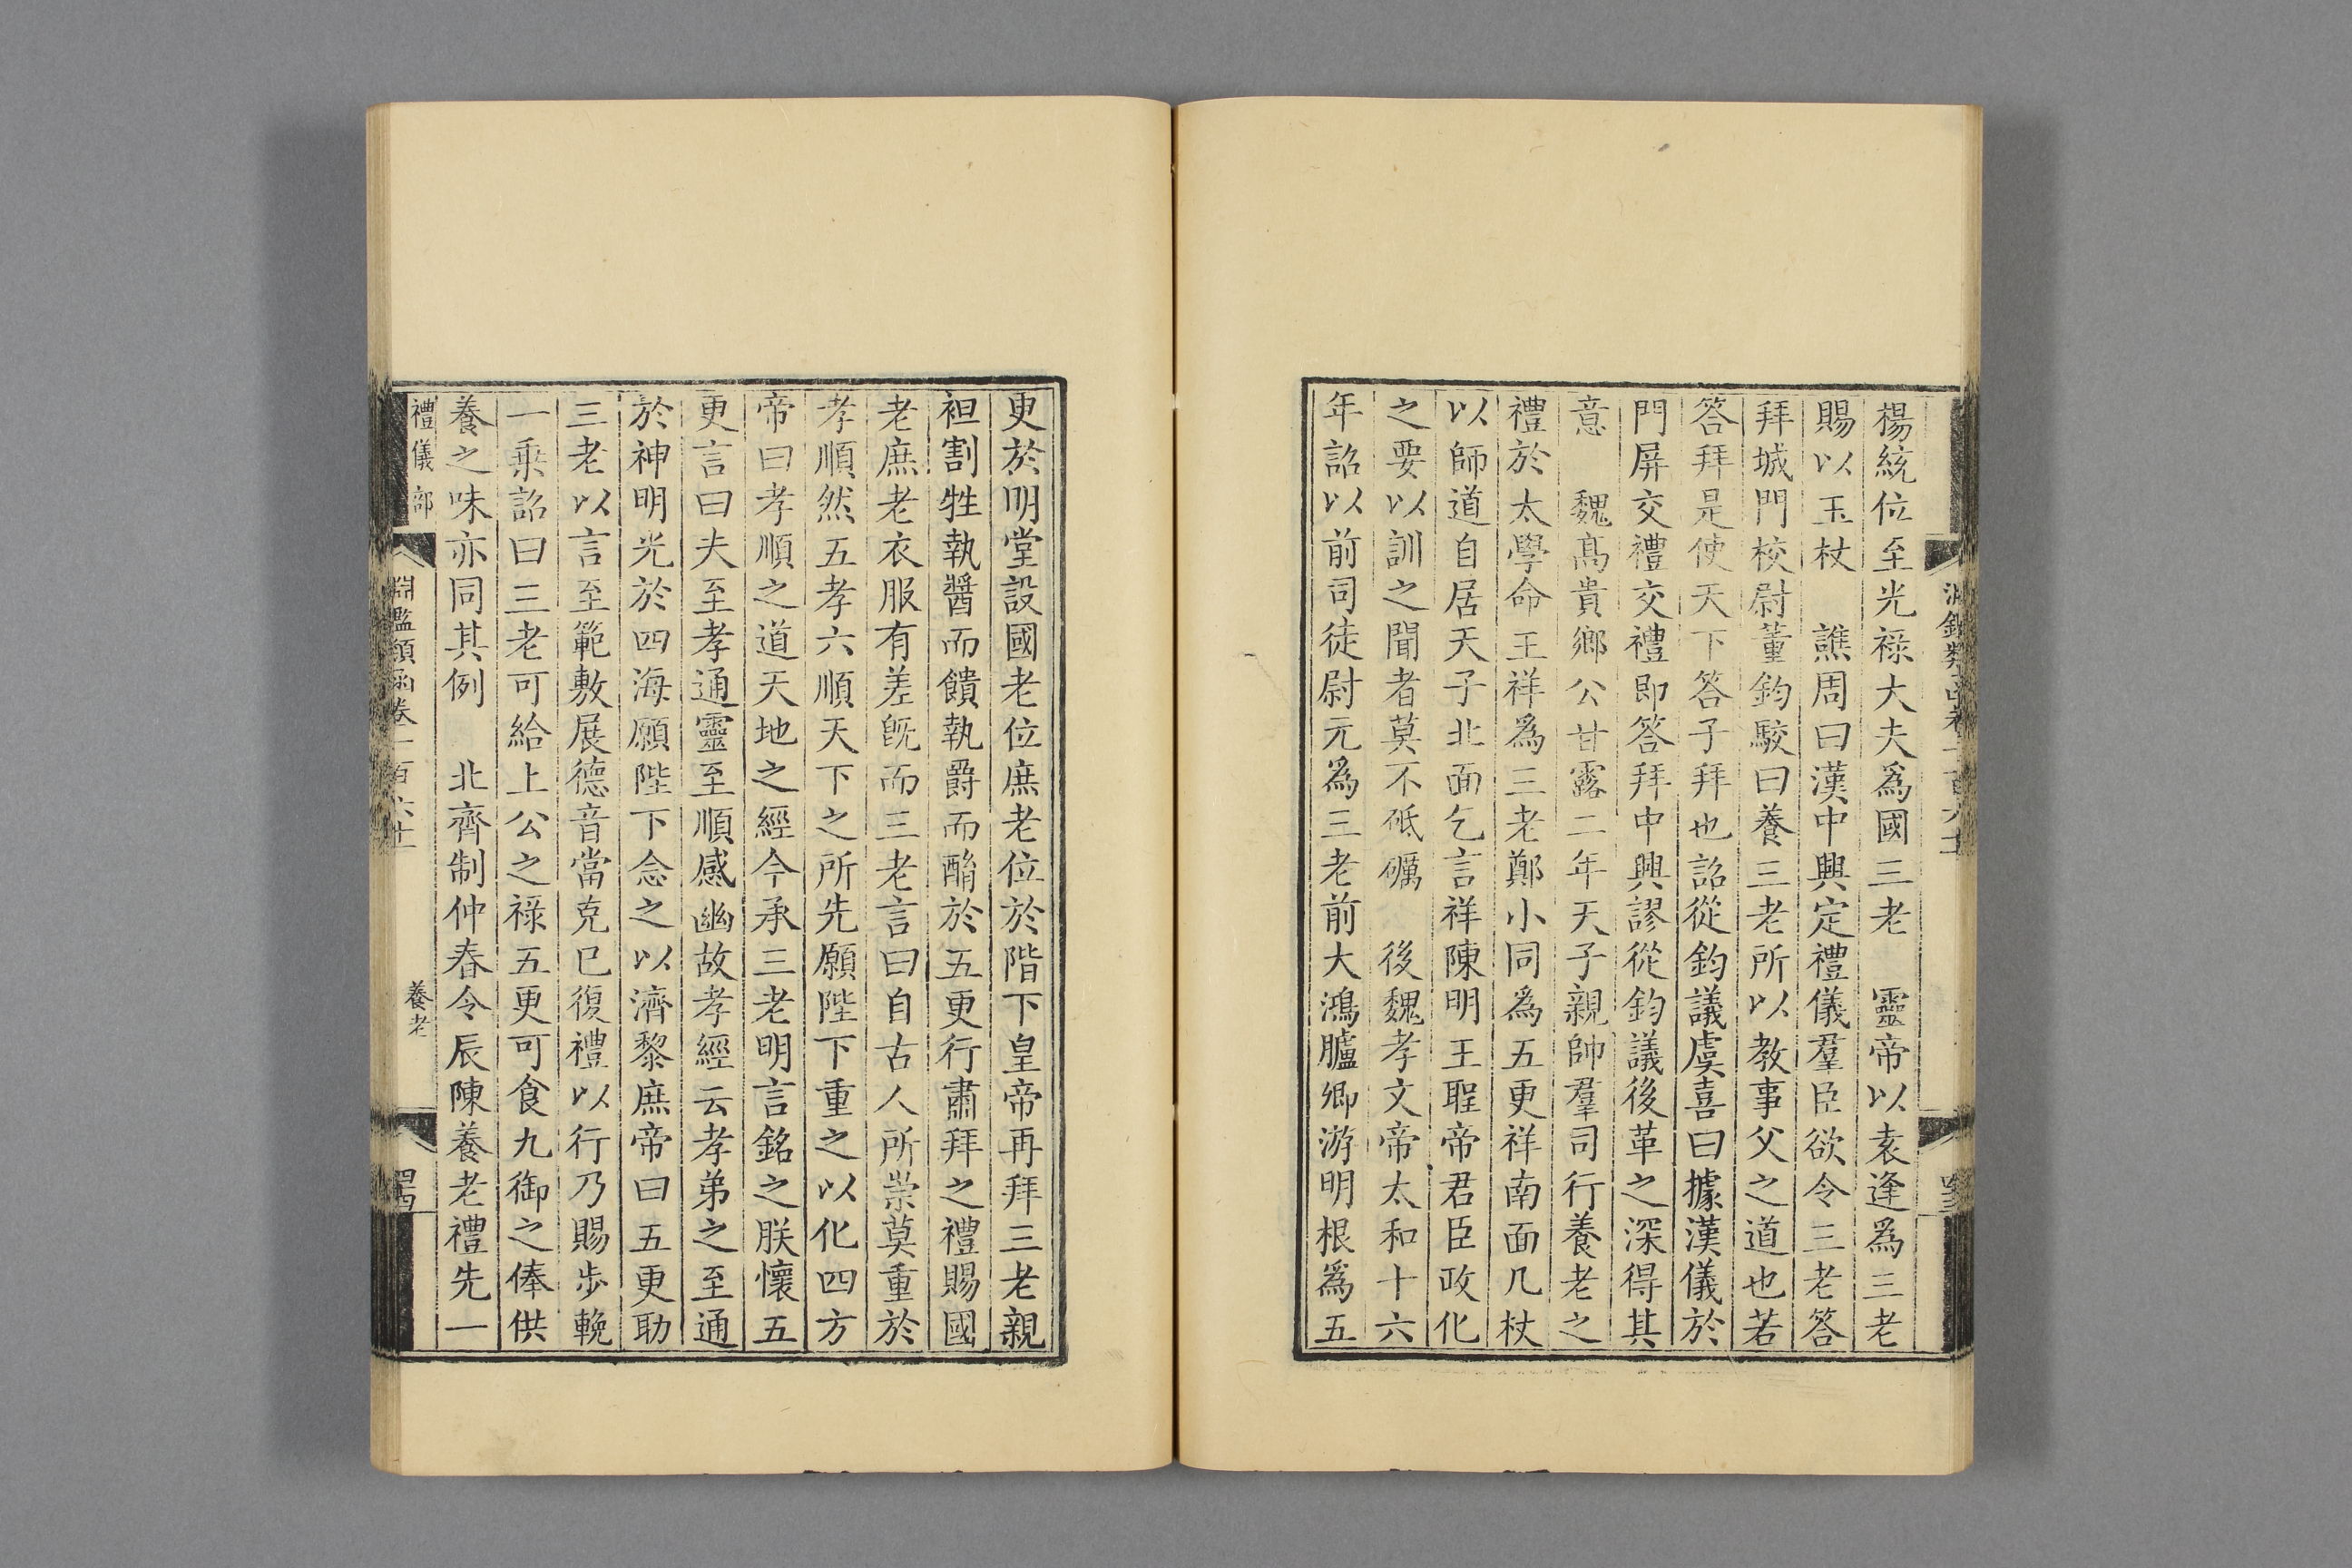 楊統位至光祿大夫爲國三老　靈帝以袁逢爲三老
賜以玉杖　譙周曰漢中興定禮儀羣臣欲令三老答
拜城門校尉董鈞駮曰養三老所以教事父之道也若
答拜是使天下答子拜也詔從鈞議虞喜曰據漢儀於
門屏交禮交禮即答拜中興謬從鈞議後革之深得其
意　魏高貴鄉公甘露二年天子親帥羣司行養老之
禮於太學命王祥爲三老鄭小同爲五更祥南面几杖
以師道自居天子北面乞言祥陳明王聖帝君臣政化
之要以訓之聞者莫不砥礪　後魏孝文帝太和十六
年詔以前司徒尉元爲三老前大鴻臚卿游明根爲五
更於明堂設國老位庶老位於階下皇帝再拜三老親
袒割牲執醬而饋執爵而酳於五更行肅拜之禮賜國
老庶老衣服有差旣而三老言曰自古人所崇莫重於
孝順然五孝六順天下之所先願陛下重之以化四方
帝曰孝順之道天地之經今承三老明言銘之朕懷五
更言曰夫至孝通靈至順感幽故孝經云孝弟之至通
於神明光於四海願陛下念之以濟黎庶帝曰五更助
三老以言至範敷展德音當克已復禮以行乃賜步輓
一乘詔曰三老可給上公之祿五更可食九御之俸供
養之味亦同其例　北齊制仲春令辰陳養老禮先一
禮儀部
淵鑑類函卷一百六十
養老